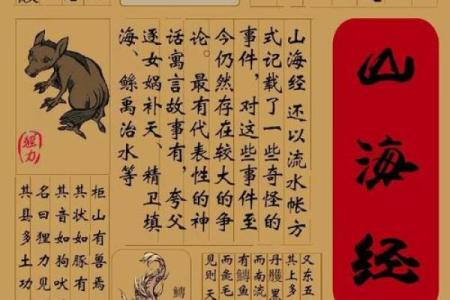 山海经
山海经还以流水帐方
式记载了一些奇怪的
事件，对这些事件至
今仍然存在较大的争
论。最有代表性的神
话寓言故事有，夸父
逐女娲补天、精卫填
海、鲧禹治水等
又东五
其上多
丹雘黑
而南流
有鱄鱼
而彘毛
见则天
鱄
柜山有兽焉
其状如豚有
其音如狗吠
名曰狸力见
其县多土功